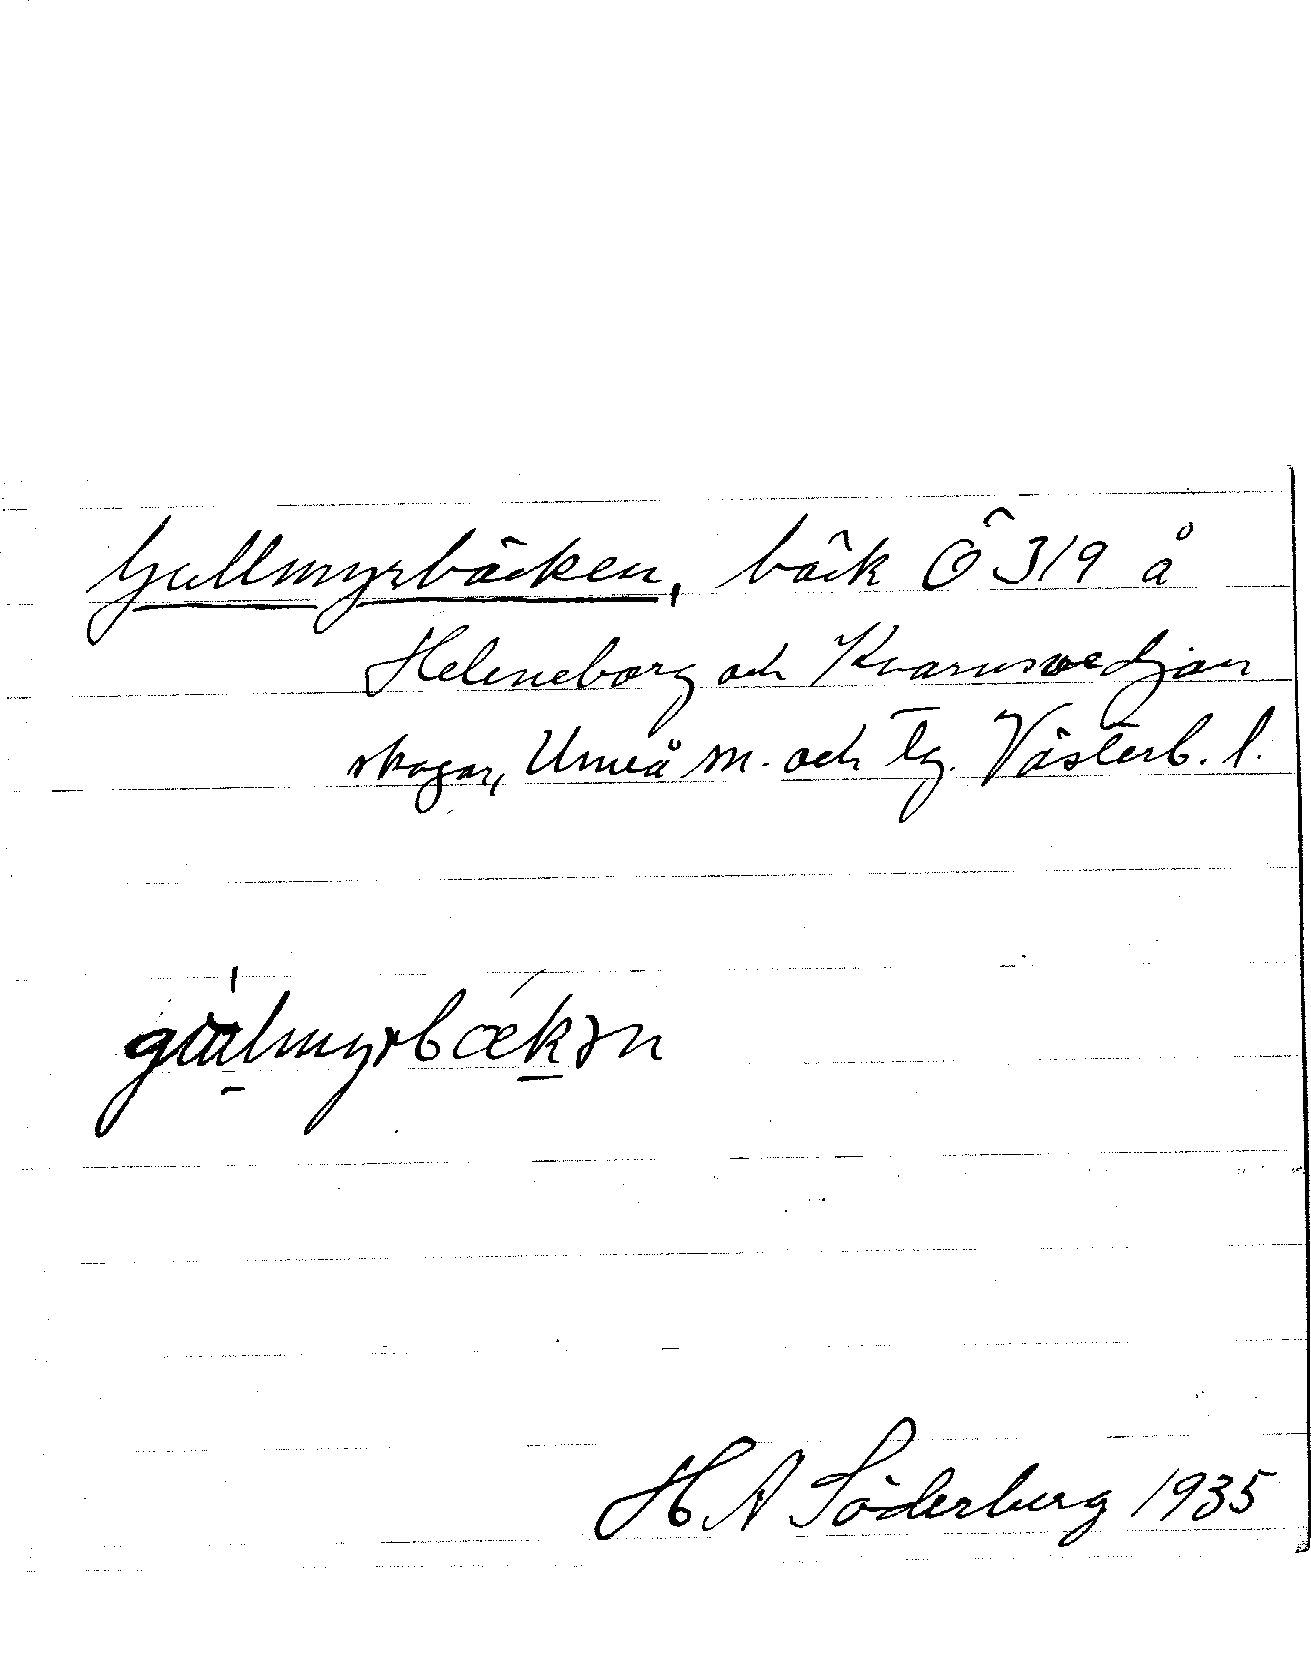 Gullmyrbäcken, bäck Ö 319 å
Heleneborg och Kvarnsvedjan
skogar, Umeå sn. och tg. Västerb. l.
gu̱lmyrbæḵən
H A Söderberg 1935